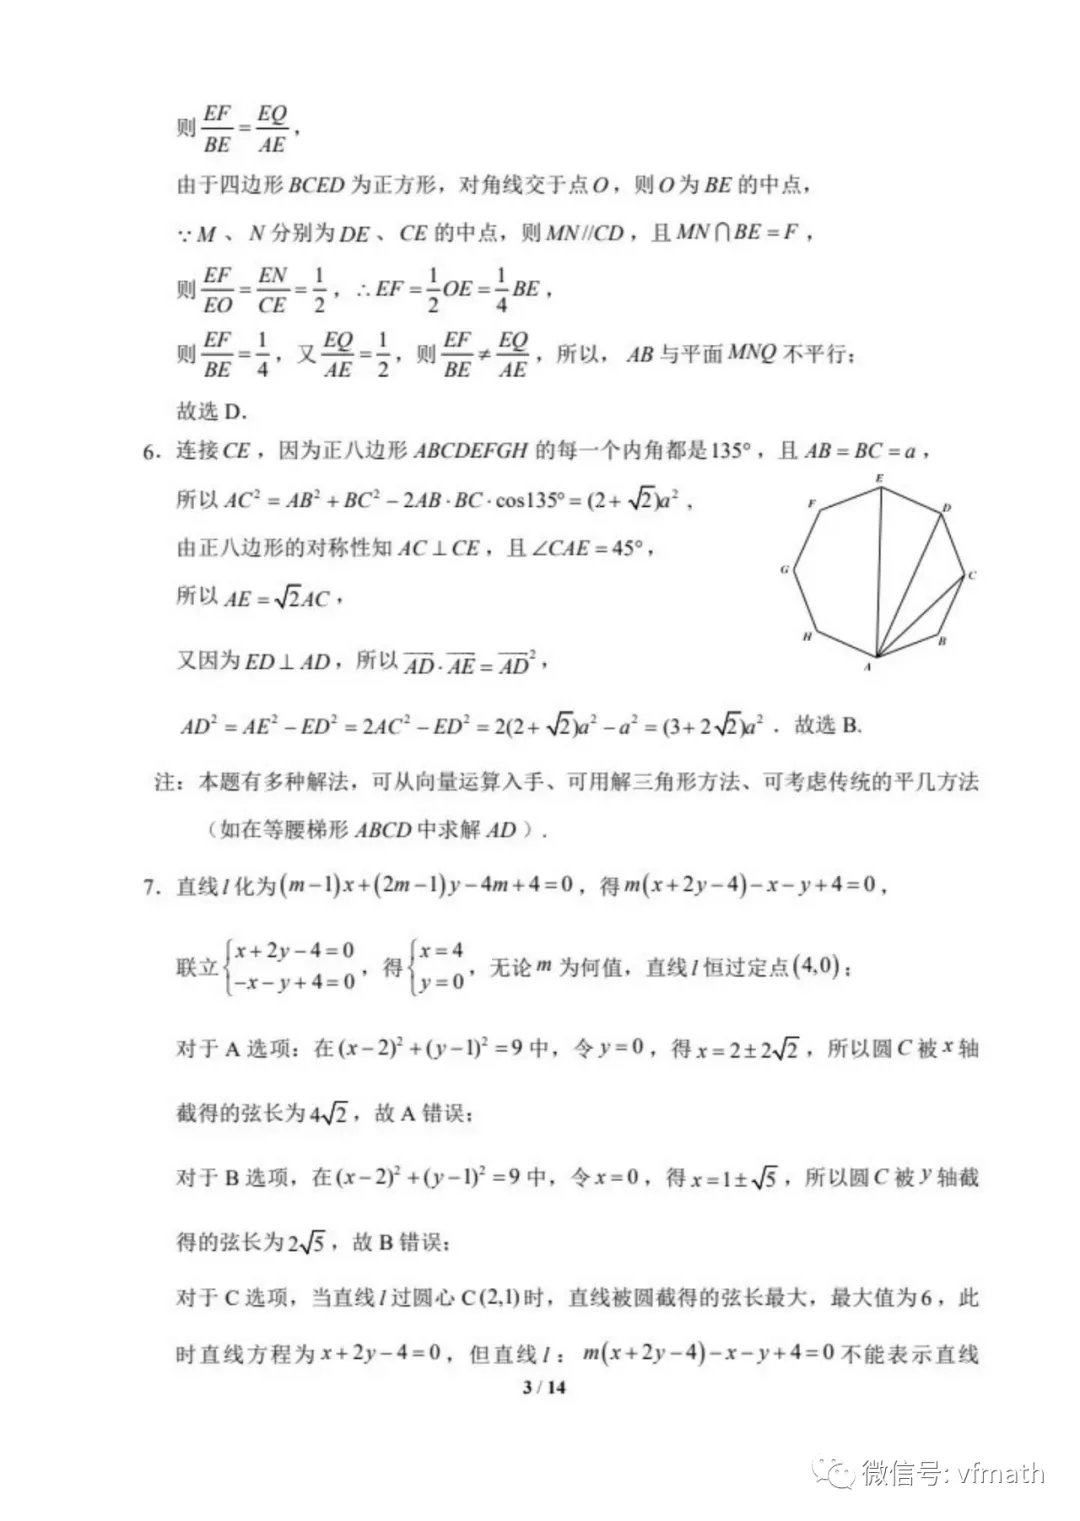 则 EF/BE = EQ/AE，
由于四边形 BCED 为正方形，对角线交于点 O，则 O 为 BE 的中点，
∵ M 、 N 分别为 DE 、 CE 的中点，则 MN//CD，且 MN⋂BE = F，
则 EF/EO = EN/CE = 1/2，∴ EF = 1/2 OE = 1/4 BE，
则 EF/BE = 1/4，又 EQ/AE = 1/2，则 EF/BE ≠ EQ/AE，所以， AB 与平面 MNQ 不平行；
故选 D．
6．连接 CE ，因为正八边形 ABCDEFGH 的每一个内角都是135°，且 AB = BC = a，
所以 AC² = AB² + BC² − 2AB · BC · cos135° = (2+ √2)a²，
由正八边形的对称性知 AC ⊥ CE，且 ∠CAE = 45°，
所以 AE = √2AC，
又因为 ED ⊥ AD，所以 \overline{AD} · \overline{AE} = \overline{AD}²，
AD² = AE² − ED² = 2AC² − ED² = 2(2+ √2)a² − a² = (3+ 2√2)a²．故选 B.
E
F
D
G
C
H
B
A
注：本题有多种解法，可从向量运算入手、可用解三角形方法、可考虑传统的平几方法
（如在等腰梯形 ABCD 中求解 AD ）.
7．直线 l 化为 (m−1)x+(2m−1)y−4m+4=0，得 m(x+2y−4)−x−y+4=0，
联立 {x+2y−4=0 −x−y+4=0，得 {x=4 y=0，无论 m 为何值，直线 l 恒过定点 (4,0)；
对于 A 选项：在 (x−2)²+(y−1)²=9 中，令 y=0，得 x=2±2√2，所以圆 C 被 x 轴
截得的弦长为 4√2，故 A 错误；
对于 B 选项，在 (x−2)²+(y−1)²=9 中，令 x=0，得 x=1±√5，所以圆 C 被 y 轴截
得的弦长为 2√5，故 B 错误；
对于 C 选项，当直线 l 过圆心 C(2,1)时，直线被圆截得的弦长最大，最大值为 6，此
时直线方程为 x+2y−4=0，但直线 l： m(x+2y−4)−x−y+4=0 不能表示直线
3 / 14
微信号: vfmath